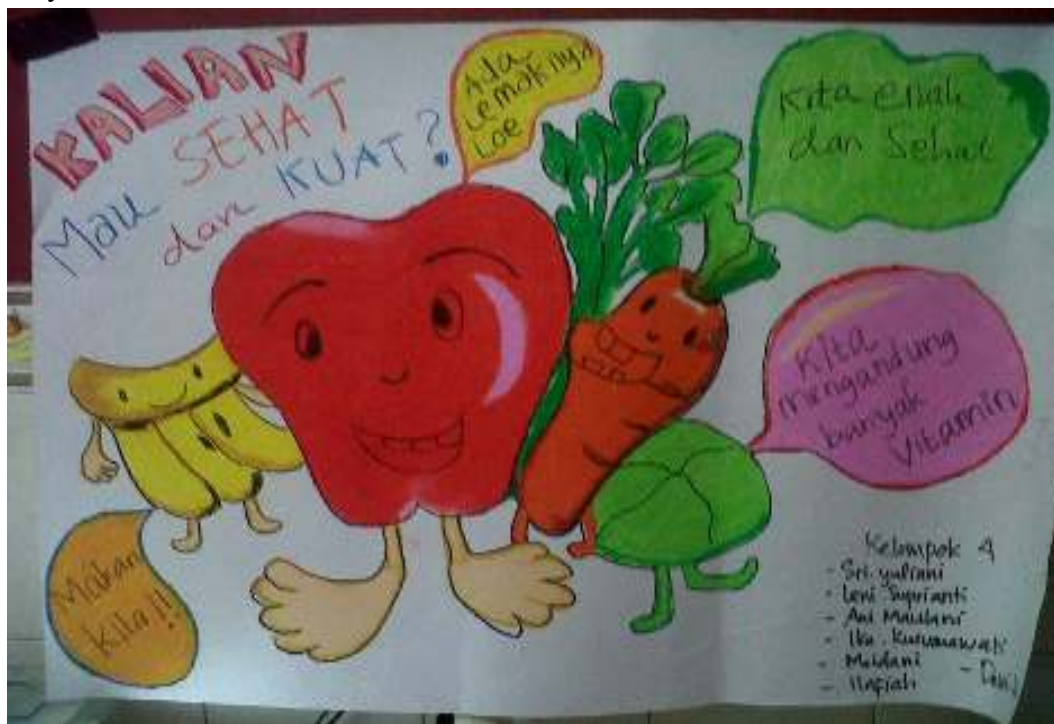 KALIAN
Mau SEHAT
dan KUAT?
Ada
Lemaknya
Loe
Kita enak
dan Sehat
Kita
mengandung
banyak
Vitamin
Makan
kita!!
Kelompok 4
- Sri yuliani
- Leni Suprianti
- Ani Maulani
- Ika Kurniawati
- Meldani